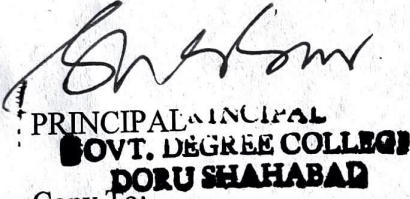 PRINCIPAL PRINCIPAL
GOVT. DEGREE COLLEGE
DORU SHAHABAD
Copy To: